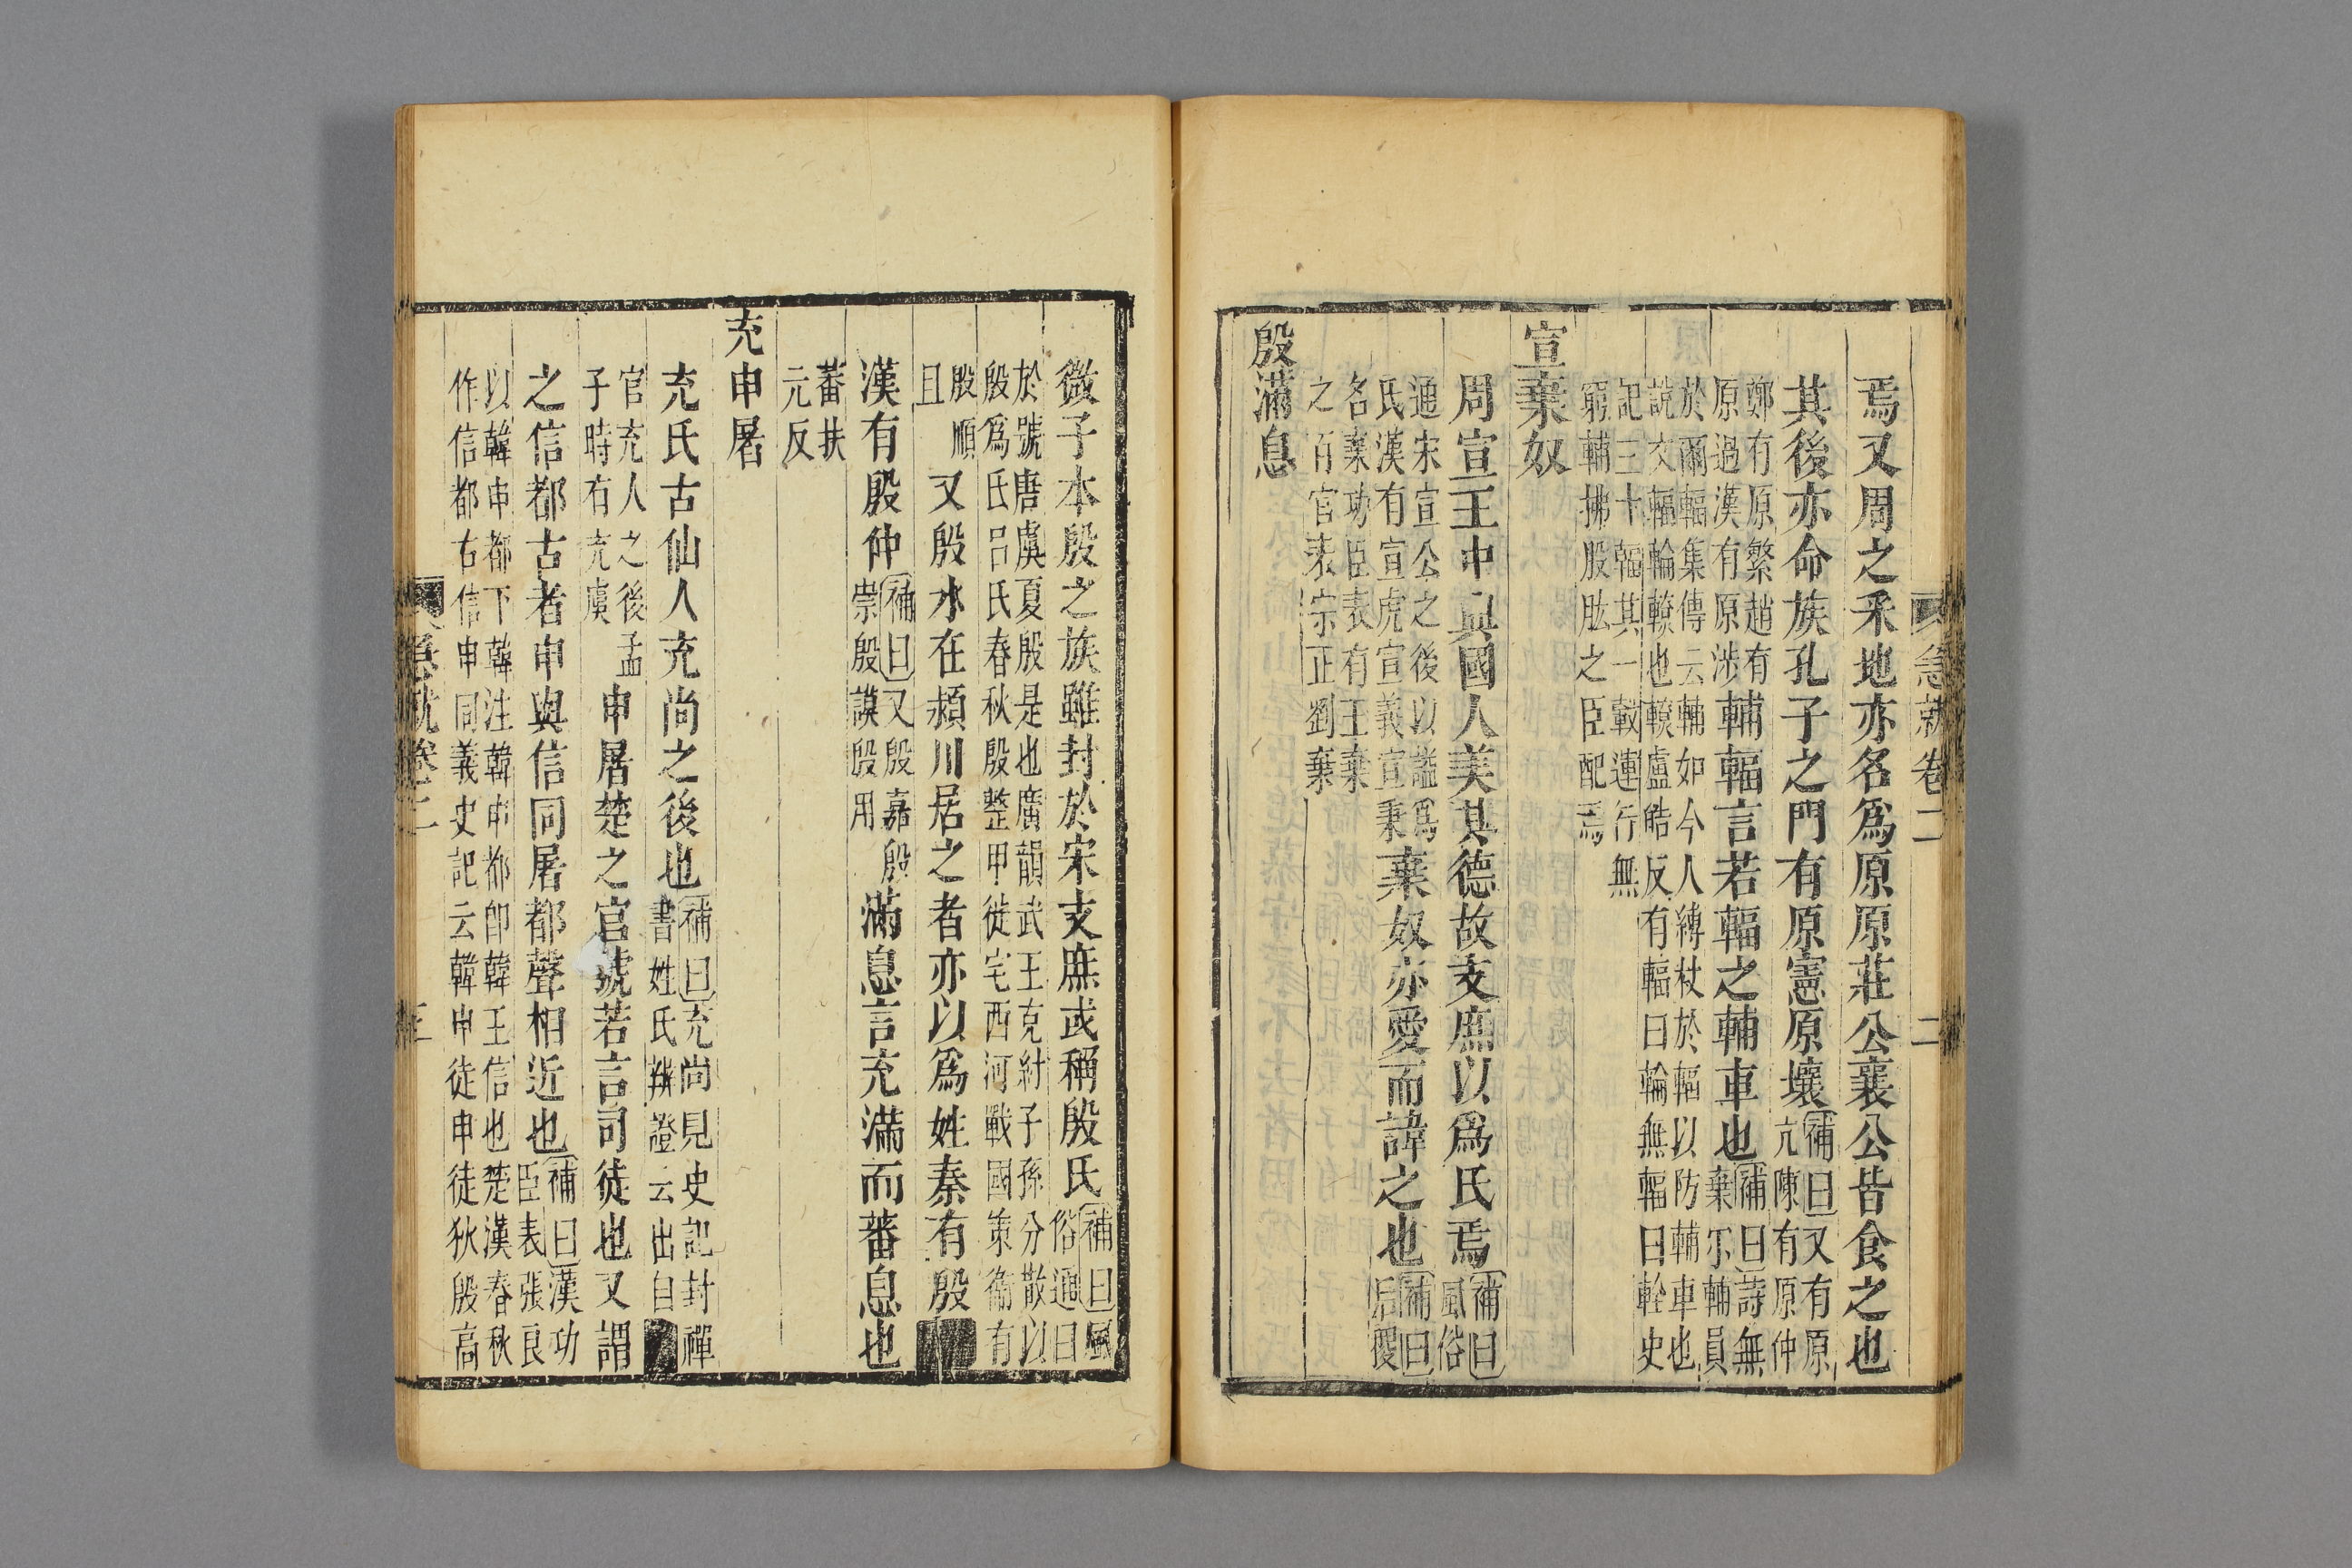 急就卷二 二
焉又周之釆地亦名爲原原莊公襄公皆食之也
其後亦命族孔子之門有原憲原壤補曰又有原
亢陳有原仲
鄭有原繁趙有
原過漢有原涉輔輻言若輻之輔車也補曰詩無
棄尓輔員
於爾輻集傳云輔如今人縛杖於輻以防輔車也
說文輻輪轑也轑盧皓反有輻曰輪無輻曰輇史
記三十輻其一轂連行無
窮輔拂股肱之臣配焉
宣棄奴
周宣王中興國人美其德故支庶以爲氏焉補曰
風俗
通宋宣公之後以謚爲
氏漢有宣虎宣義宣秉棄奴亦愛而諱之也補曰
后稷
名棄功臣表有王棄
之百官表宗正劉棄
殷滿息
微子本殷之族雖封於宋支庶或稱殷氏補曰風
俗通曰
於號唐虞夏殷是也廣韻武王克紂子孫分散以
殷爲氏呂氏春秋殷整甲徙宅西河戰國策衞有
殷順
且又殷水在潁川居之者亦以爲姓秦有殷
漢有殷仲補曰又殷嘉殷
崇殷謨殷用滿息言充滿而蕃息也
蕃扶
元反
充申屠
充氏古仙人充尚之後也補曰充尚見史記封禪
書姓氏辨證云出自
官充人之後孟
子時有充虞申屠楚之官號若言司徒也又謂
之信都古者申與信同屠都聲相近也補曰漢功
臣表張良
以韓申都下韓注韓申都卽韓王信也楚漢春秋
作信都古信申同義史記云韓申徒申徒狄殷高
急就卷二